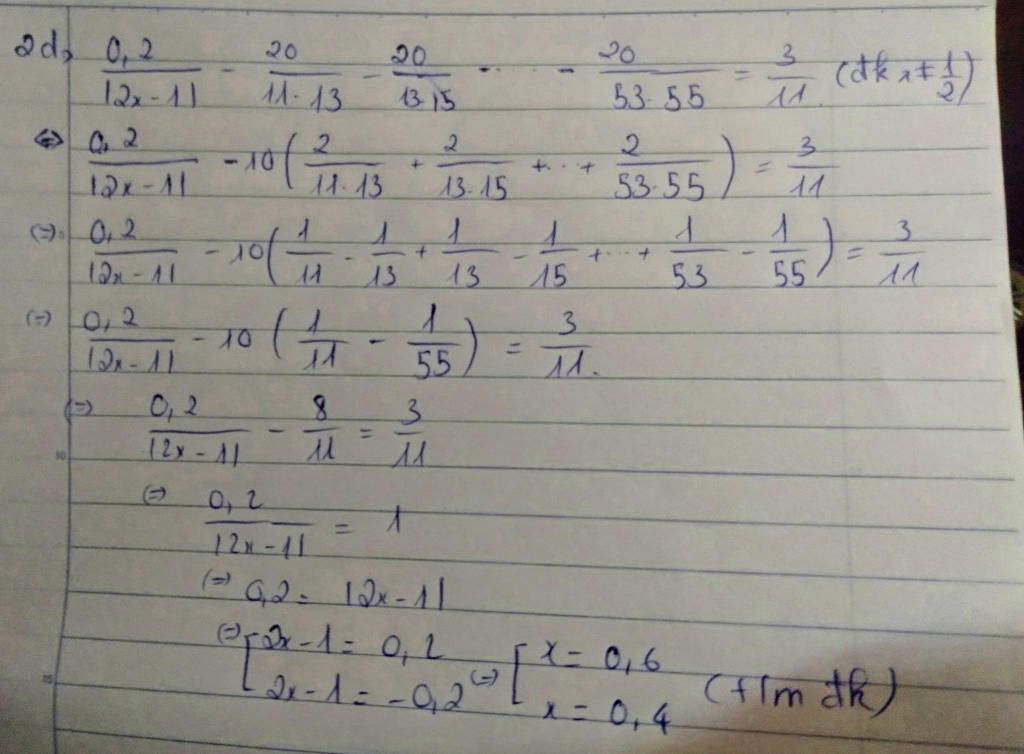 2d, 0,2/|2x-1| - 20/11·13 - 20/13·15 - ... - 20/53·55 = 3/11 (đk x ≠ 1/2)
⇔ 0,2/|2x-1| - 10(2/11·13 + 2/13·15 + ... + 2/53·55) = 3/11
(=) 0,2/|2x-1| - 10(1/11 - 1/13 + 1/13 - 1/15 + ... + 1/53 - 1/55) = 3/11
(=) 0,2/|2x-1| - 10(1/11 - 1/55) = 3/11.
(=) 0,2/|2x-1| - 8/11 = 3/11
(=) 0,2/|2x-1| = 1
(=) 0,2 = |2x-1|
(=) [2x-1 = 0,2 (=) [x = 0,6
2x-1 = -0,2 x = 0,4 (t/m đk)